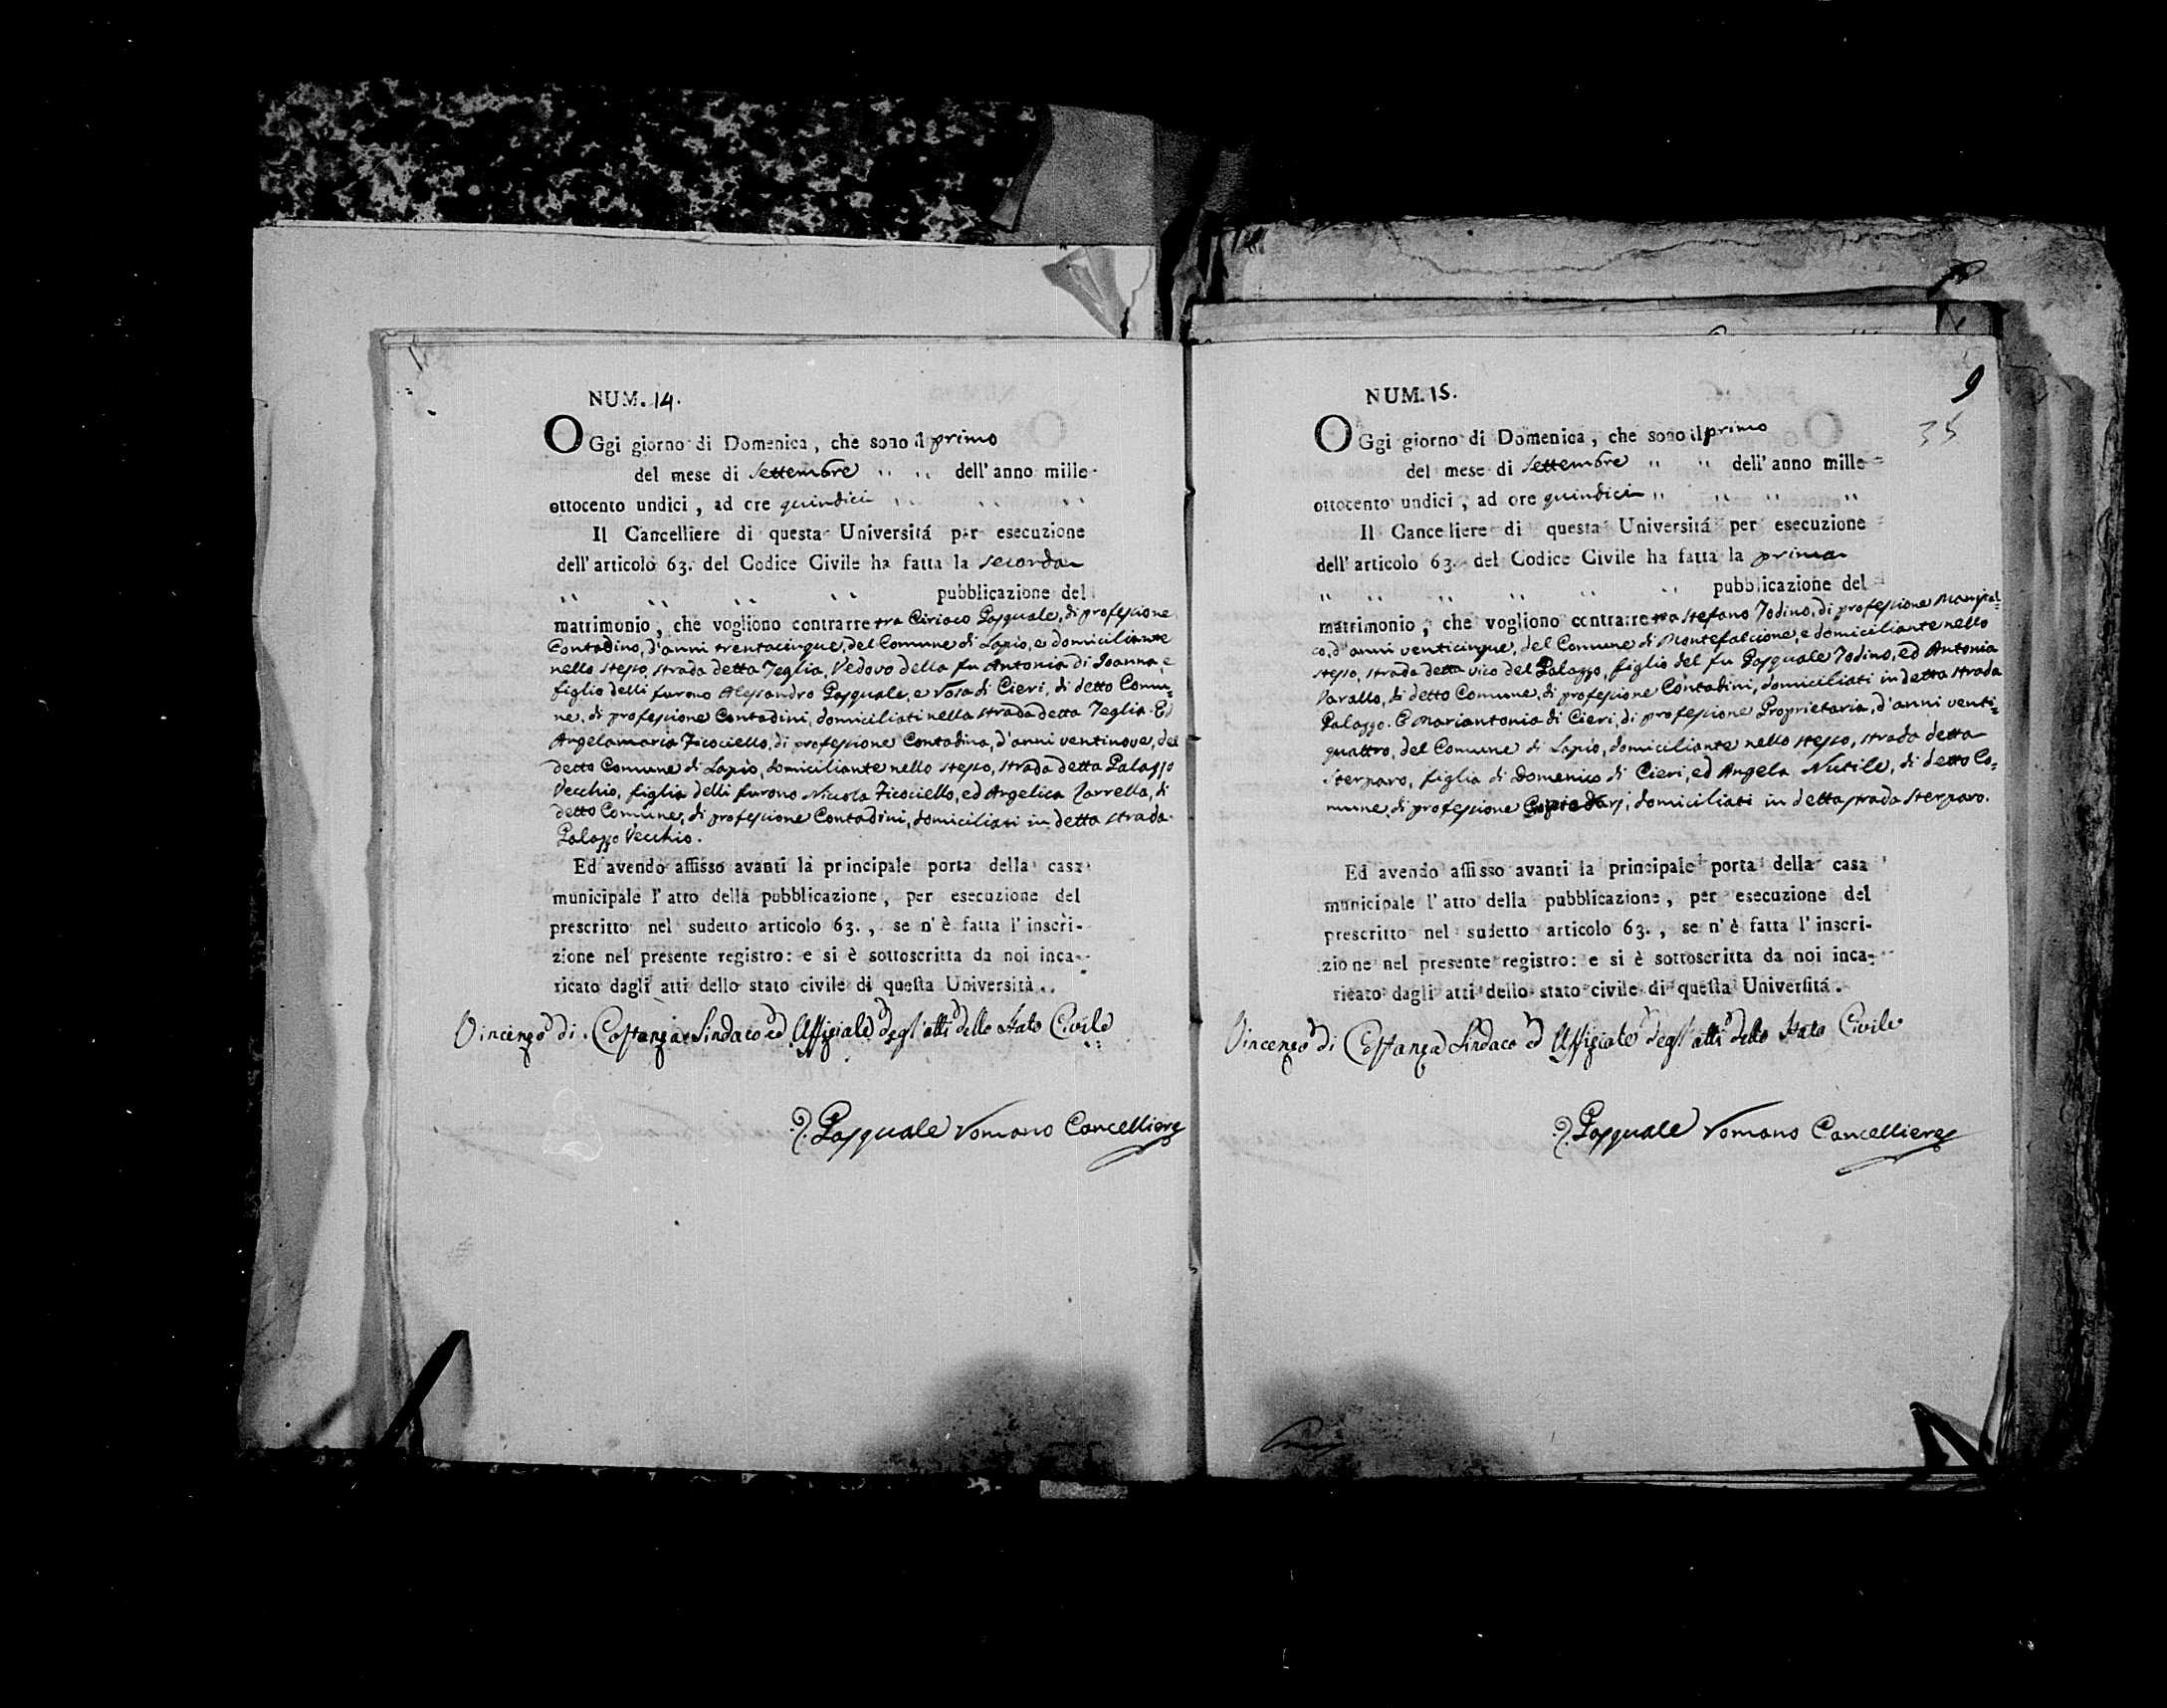 NUM. 14.
OGgi giorno di Domenica, che sono il primo
del mese di Settembre " " dell'anno mille-
ottocento undici, ad ore quindici " " "
Il Cancelliere di questa Universitá per esecuzione
dell'articolo 63. del Codice Civile ha fatta la seconda
" " " " pubblicazione del
matrimonio, che vogliono contrarre tra Ciriaco Pasquale, di professione
Contadino, d'anni trentacinque, del Comune di Lapio, e domiciliante
nello stesso, strada detta Teglia, Vedovo della fu Antonia di Joanna e
figlio delli furono Alessandro Pasquale, e Rosa di Cieri, di detto Comu=
ne, di professione Contadini, domiciliati nella strada detta Teglia. Ed
Angelamaria Ficociello, di professione Contadina, d'anni ventinove, del
detto Comune di Lapio, domiciliante nello stesso, strada detta Palazzo
Vecchio, figlia delli furono Nicola Ficociello, ed Angelica Zarrella, di
detto Comune, di professione Contadini, domiciliati in detta strada
Palazzo Vecchio.
Ed avendo affisso avanti la principale porta della casa
municipale l'atto della pubblicazione, per esecuzione del
prescritto nel sudetto articolo 63., se n'è fatta l'inscri-
zione nel presente registro: e si è sottoscritta da noi inca-
ricato dagli atti dello stato civile di questa Università.
Vincenzo di Costanza Sindaco ed Uffiziale degl'atti dello Stato Civile
Pasquale Romano Cancelliere
NUM. 15.
9
35
OGgi giorno di Domenica, che sono il primo
del mese di Settembre " " dell'anno mille-
ottocento undici, ad ore quindici " " " "
Il Cancelliere di questa Universitá per esecuzione
dell'articolo 63. del Codice Civile ha fatta la prima
" " " " " " pubblicazione del
matrimonio, che vogliono contrarre tra Stefano Iodino, di professione Maniscal=
co, d'anni venticinque, del Comune di Montefalcione, e domiciliante nello
stesso, strada detta vico del Palazzo, figlio del fu Pasquale Iodino, ed Antonia
Varallo, di detto Comune, di professione Contadini, domiciliati in detta strada
Palazzo. E Mariantonia di Cieri, di professione Proprietaria, d'anni venti=
quattro, del Comune di Lapio, domiciliante nello stesso, strada detta
Sterparo, figlia di Domenico di Cieri, ed Angela Nutile, di detto Co=
mune, di professione domiciliati in detta strada Sterparo.
Ed avendo affisso avanti la principale porta della casa
municipale l'atto della pubblicazione, per esecuzione del
prescritto nel sudetto articolo 63., se n'è fatta l'inscri-
zione nel presente registro: e si è sottoscritta da noi inca-
ricato dagli atti dello stato civile di questa Universitá.
Vincenzo di Costanza Sindaco ed Uffiziale degl'atti dello Stato Civile
Pasquale Romano Cancelliere